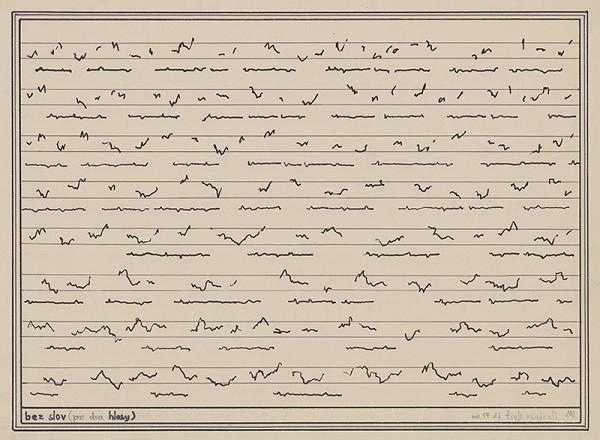 bez slov (pre dva hlasy)
no. 17 di fogli musicali